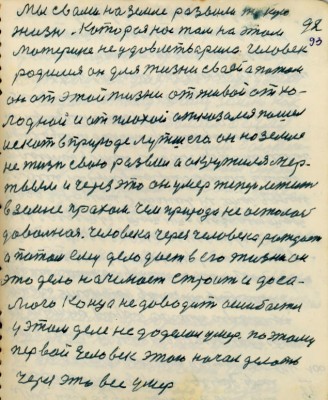 Мы с вами на земле развили такую
жизнь. Которая нас там на этом
98
93
материке не удовлетворила. Человек
родился он для жизни своей а потом
он от этой жизни от живой от хо-
лодной и от плохой отказался пошел
искать в природе лутшего он на земле
не жизнь свою развил а окружился мер-
твым и через это он умер теперь лежит
в земле прахом чем природа не осталась
довольная. Человека через человека рождает
а потом ему дело дает в его жизни он
это дело начинает строит и до са-
мого конца не доводит ошибается
у этом деле не доделал умер поэтому
первой Человек этого начал делать
через это все умер